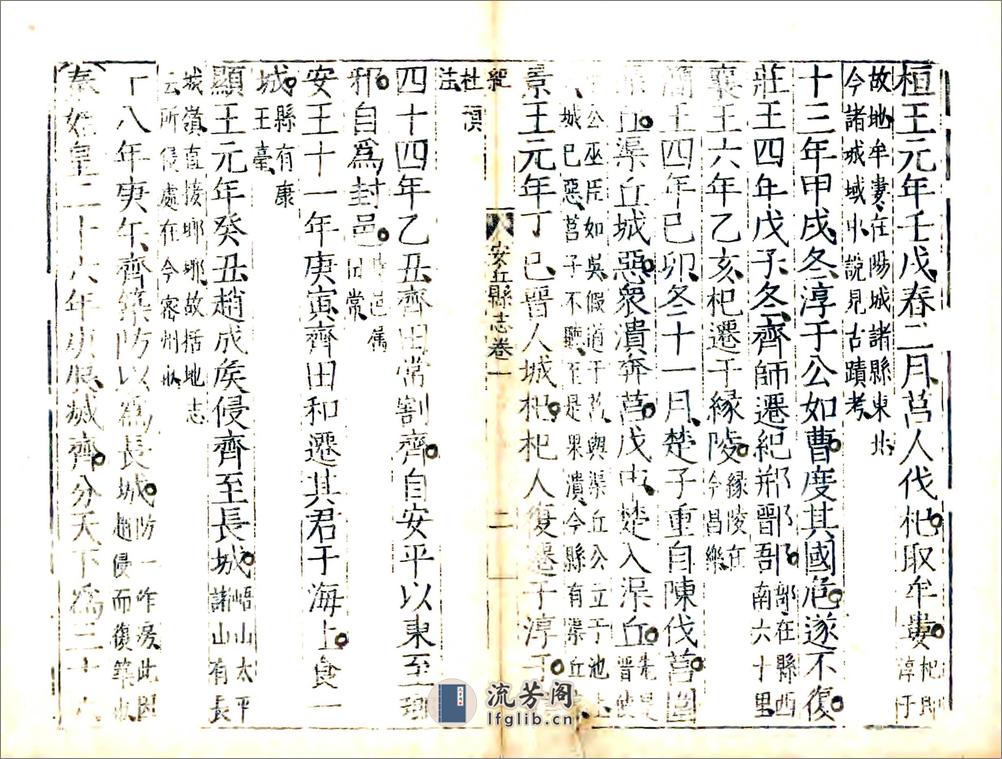 桓王元年壬戌春二月莒人伐杞取牟婁杞即淳于
故地牟婁在陽城諸縣東北
今諸城域中說見古蹟考
十三年甲戌冬淳于公如曹度其國危遂不復
莊王四年戊子冬齊師遷紀郱鄑郚郚在縣西
南六十里
襄王六年乙亥杞遷于緣陵緣陵在
今昌樂
簡王四年己卯冬十一月楚子重自陳伐莒圍
渠丘渠丘城惡衆潰奔莒戊申楚入渠丘先是晋使
申公巫臣如吳假道于莒與渠丘公立于池上
曰城已惡莒子不聽至是果潰今縣有渠丘
景王元年丁巳晋人城杞杞人復遷于淳于
經
杜
法 滇
安丘縣志卷一 二
四十四年乙丑齊田常割齊自安平以東至瑯
邪自爲封邑
安王十一年庚寅齊田和遷其君于海上食一
城縣有康
王亳
顯王元年癸丑趙成侯侵齊至長城峿山太平
諸山有長
城嶺直接瑯琊故括地志
云所侵處在今密州
十八年庚午齊築防以爲長城防一作房此因
趙侵而復築也
秦始皇二十六年庚辰滅齊分天下爲三十六
流芳阁
lfglib.cn